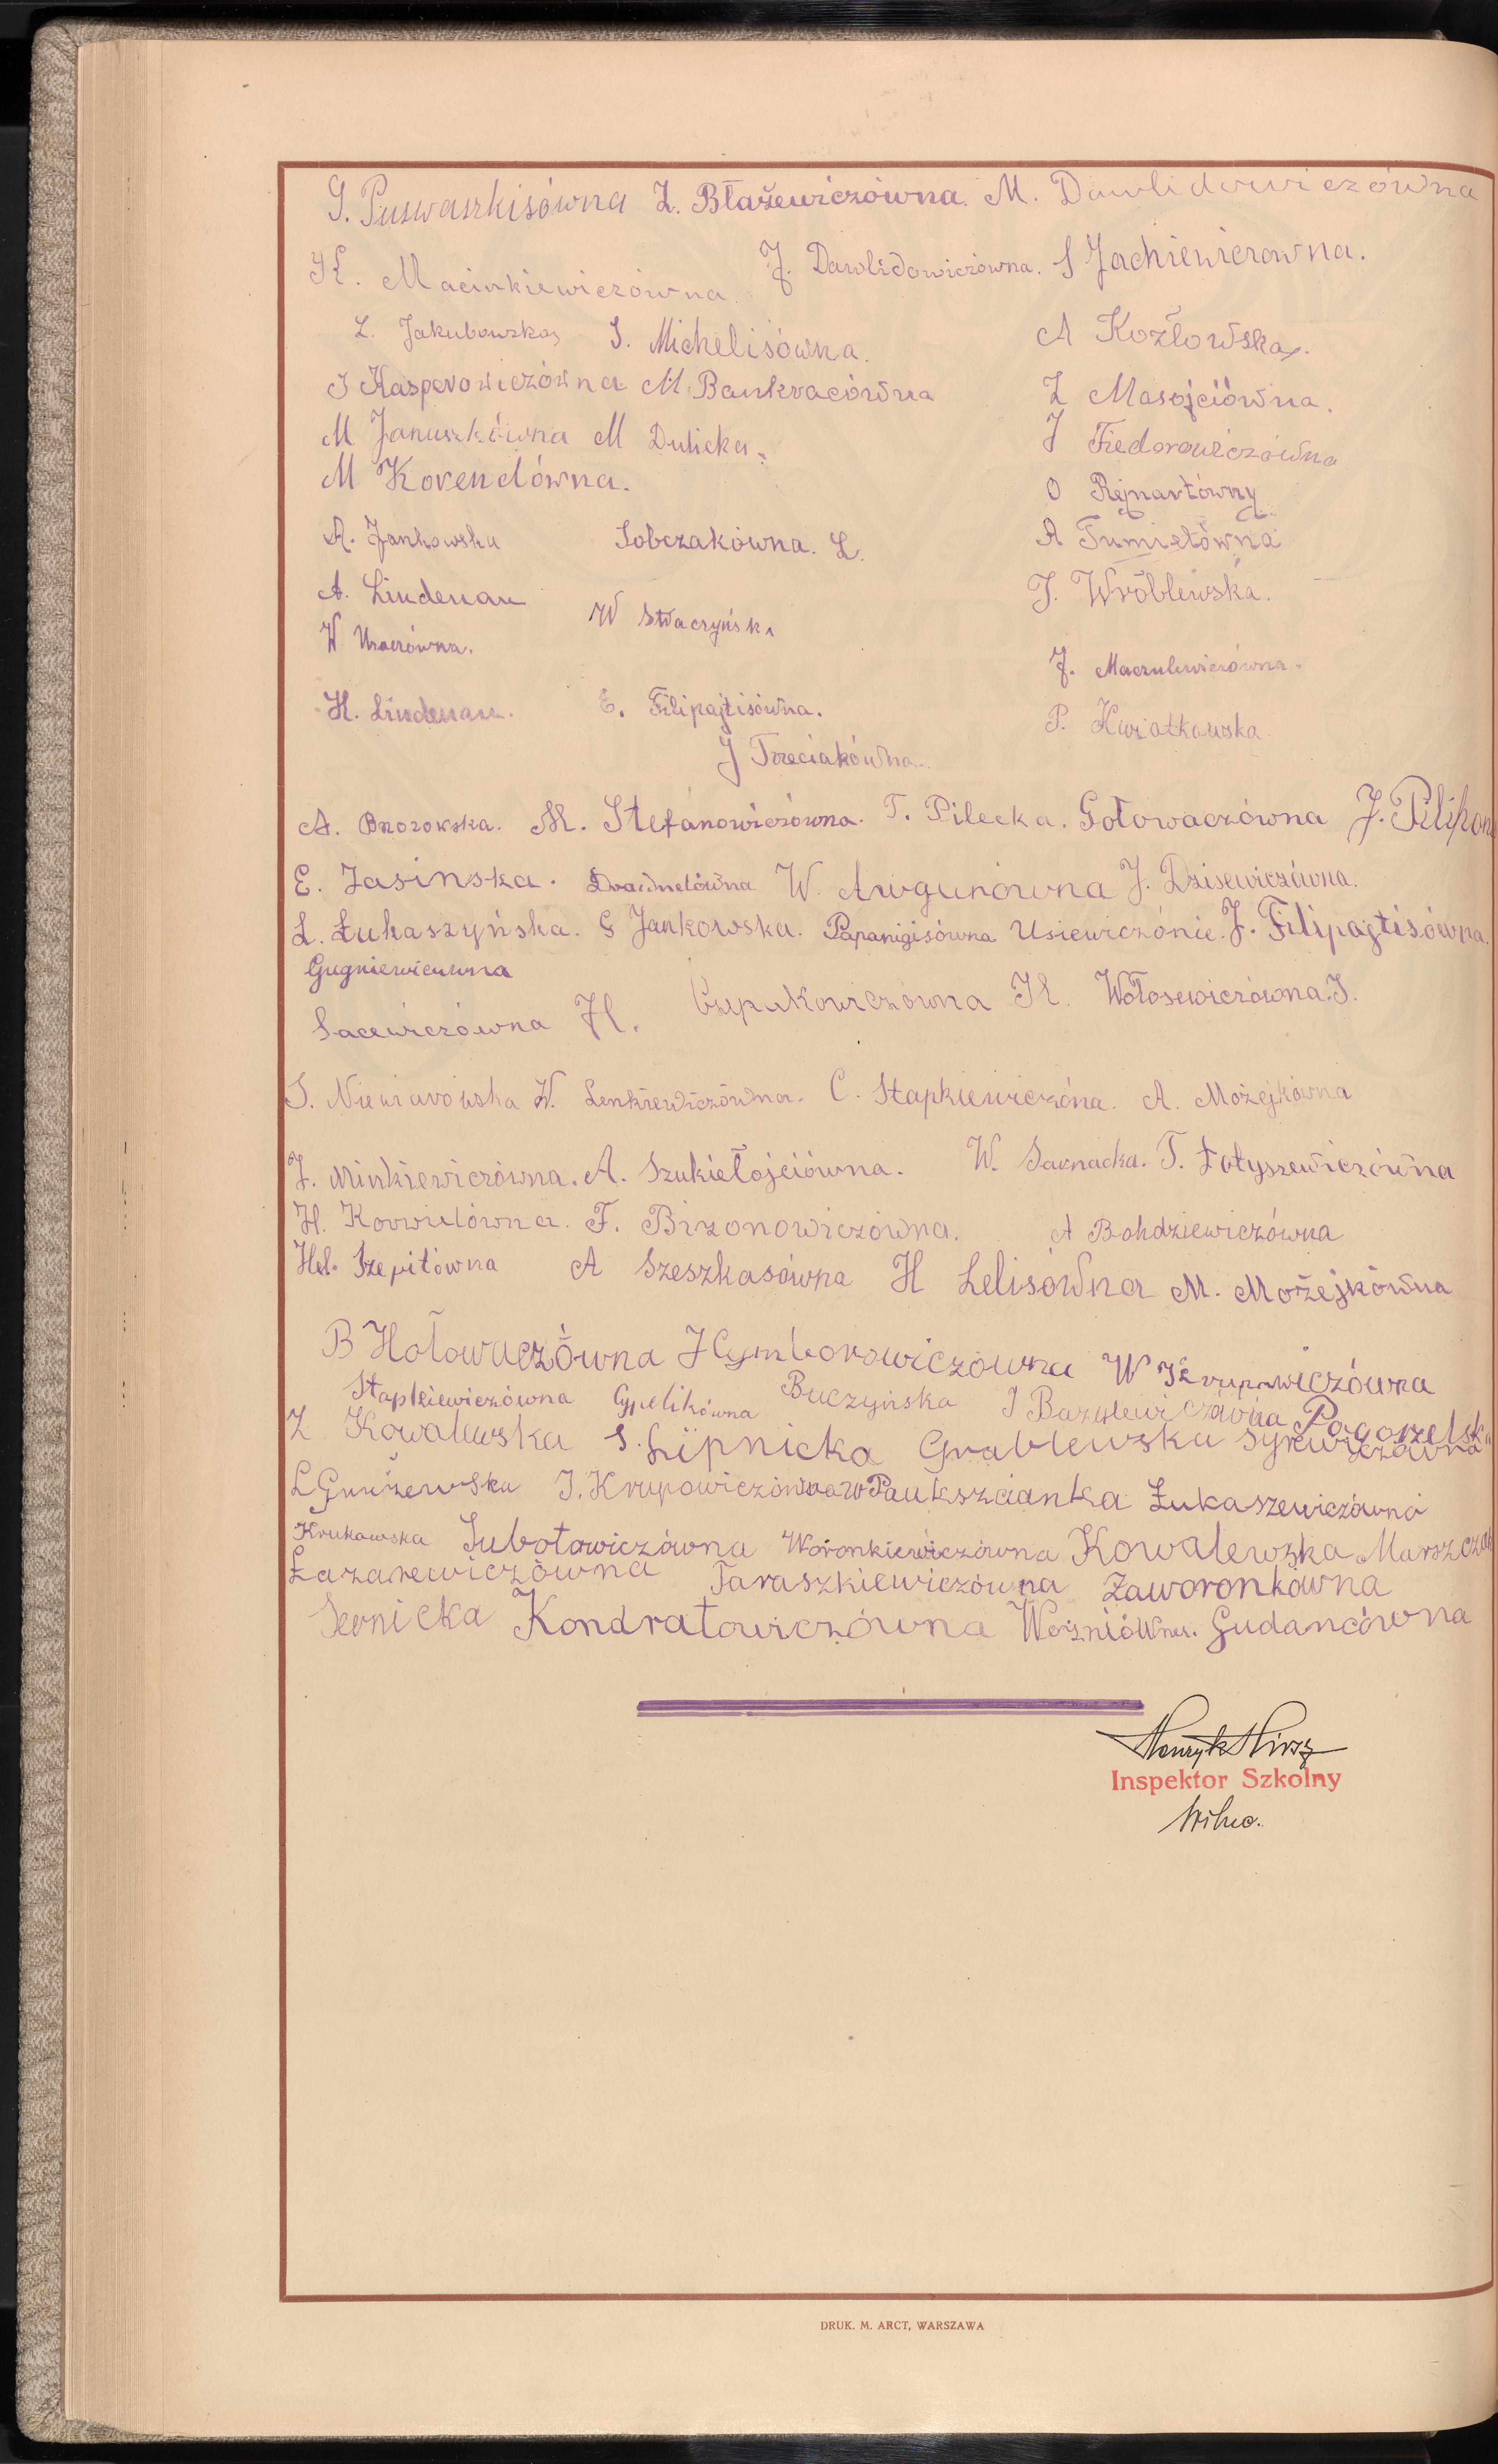 G. Puswaszkisówna Z. Błażewiczówna. M. Dawlidowiczówna
K. Macinkiewiczówna. J. Dawlidowiczówna. S Jachiewiczowna.
Z. Jakubowska, S. Michelisówna. A Kozłowska.
J Kasperowiczówna M. Bankracówna Z Masojciówna.
M Januszkówna M Dulicka. J Fiedorowiczówna
M Korendówna. O Rejnartówny
A. Jankowska Sobczakówna. L. A Tumiełówna
A. Lindenau W Stwaczyńska J. Wróblewska.
W
J. Maczulewiczówna.
H. Lindenau. E. Filipajtisówna. P. Kwiatkowska
J Trzeciakówna.
A. Brzozowska. M. Stefanowiczówna. T. Pilecka. Gołowaczówna J. Pilipon
E. Jasinska. W. Awgunówna J. Dzisewiczówna.
L. Łukaszyńska. G Jankowska. Papanigisówna Usiewiczónie. J. Filipajtisówna.
Gugniewiczuwna
Sacewiczówna H. Czepukowiczówna K. Wołosewiczówna. J.
S. Niewiarowska W. Lenkiewiczówna. C. Stapkiewiczóna. A. Możejkówna
J. Minkiewiczówna. A. Szukiełojciówna. W. Sarnacka. T. Łotyszewiczówna
H. Korwielówna. F. Bizonowiczówna. A Bohdziewiczówna
Hel. Szepitówna A Szeszkasówna H Lelisówna M. Możejkówna
B Hołowaczówna J Cymborowiczówna W Krupowiczówna
Stapkiewiczówna Cypelikówna Buczyńska J Bazylewiczówna Pogorzelska
Z Kowalewska S. Lipnicka Grablewska Syrewiczówna
L Gurżewska J. Krupowiczówna W Paukszcianka Łukaszewiczówna
Krukowska Subotowiczówna Woronkiewiczówna Kowalewska Marszczak
Łazarewiczówna Taraszkiewiczówna Zaworonkówna
Sernicka Kondratowiczówna Woźniówna. Gudancówna
Henryk Hirsz
Inspektor Szkolny
Wilno.
DRUK. M. ARCT, WARSZAWA